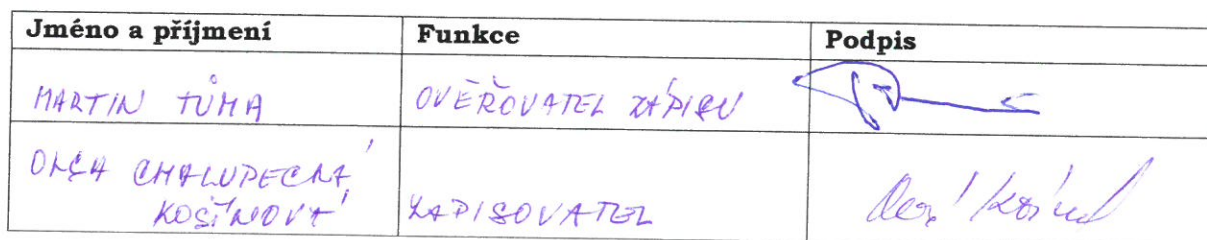 Jméno a příjmení Funkce Podpis
MARTIN TŮMA OVĚŘOVATEL ZÁPISU
OLGA CHALUPECKÁ
KOŠÍNOVÁ ZAPISOVATEL